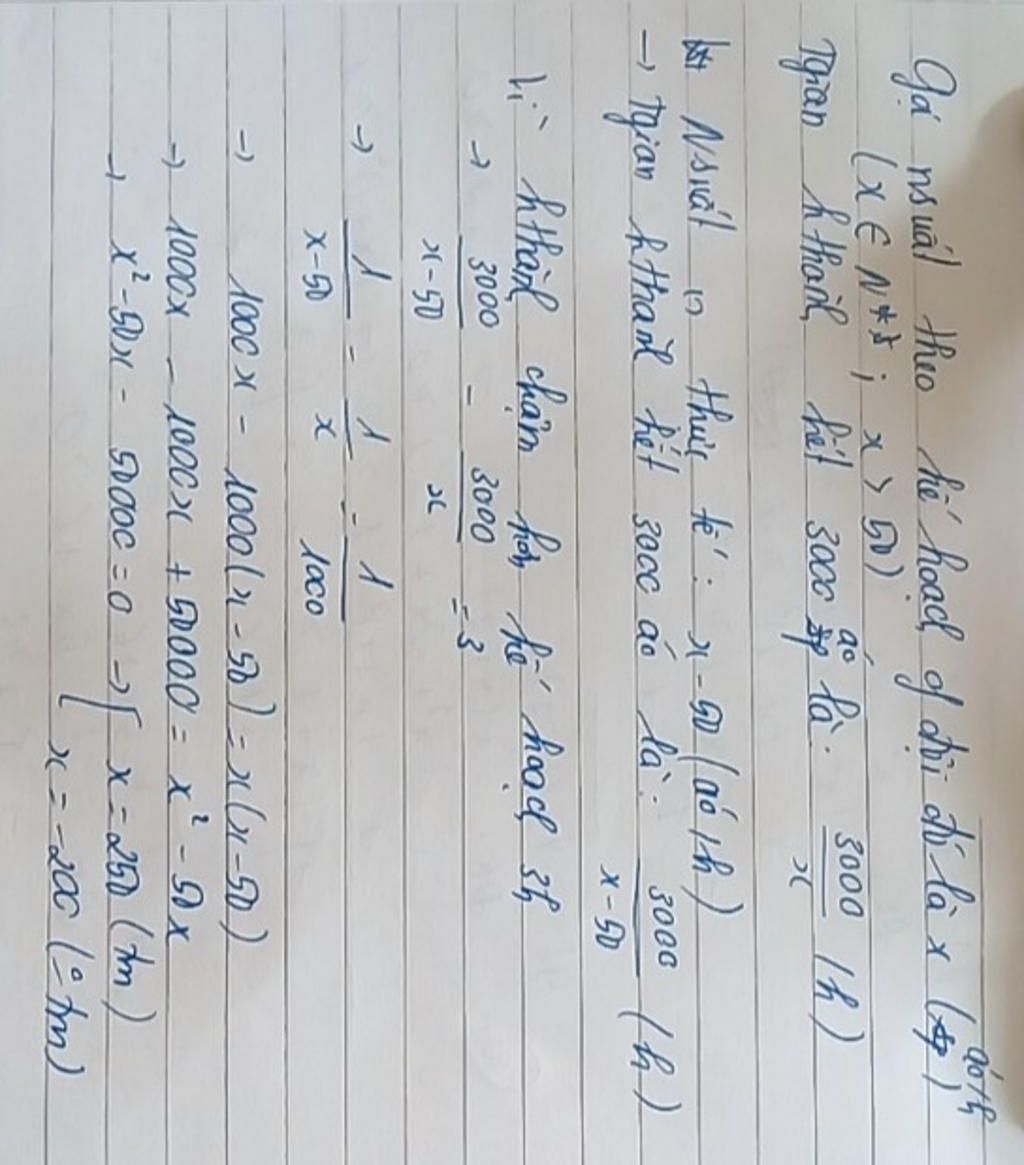 Gọi nsuất theo kế hoạch of đội đó là x (áo/h)
(x ∈ N*; x > 50)
Tgian hthành hết 3000 áo là: 3000/x (h)
Nsuất thực tế: x-50 (áo/h)
→ Tgian hthành hết 3000 áo là: 3000/x-50 (h)
Vì hthành chậm hơn kế hoạch 3h
→ 3000/x-50 - 3000/x = 3
→ 1/x-50 - 1/x = 1/1000
→ 1000x - 1000(x-50) = x(x-50)
→ 1000x - 1000x + 50000 = x² - 50x
→ x² - 50x - 50000 = 0 → [ x = 250 (tm)
x = -200 (o tm)